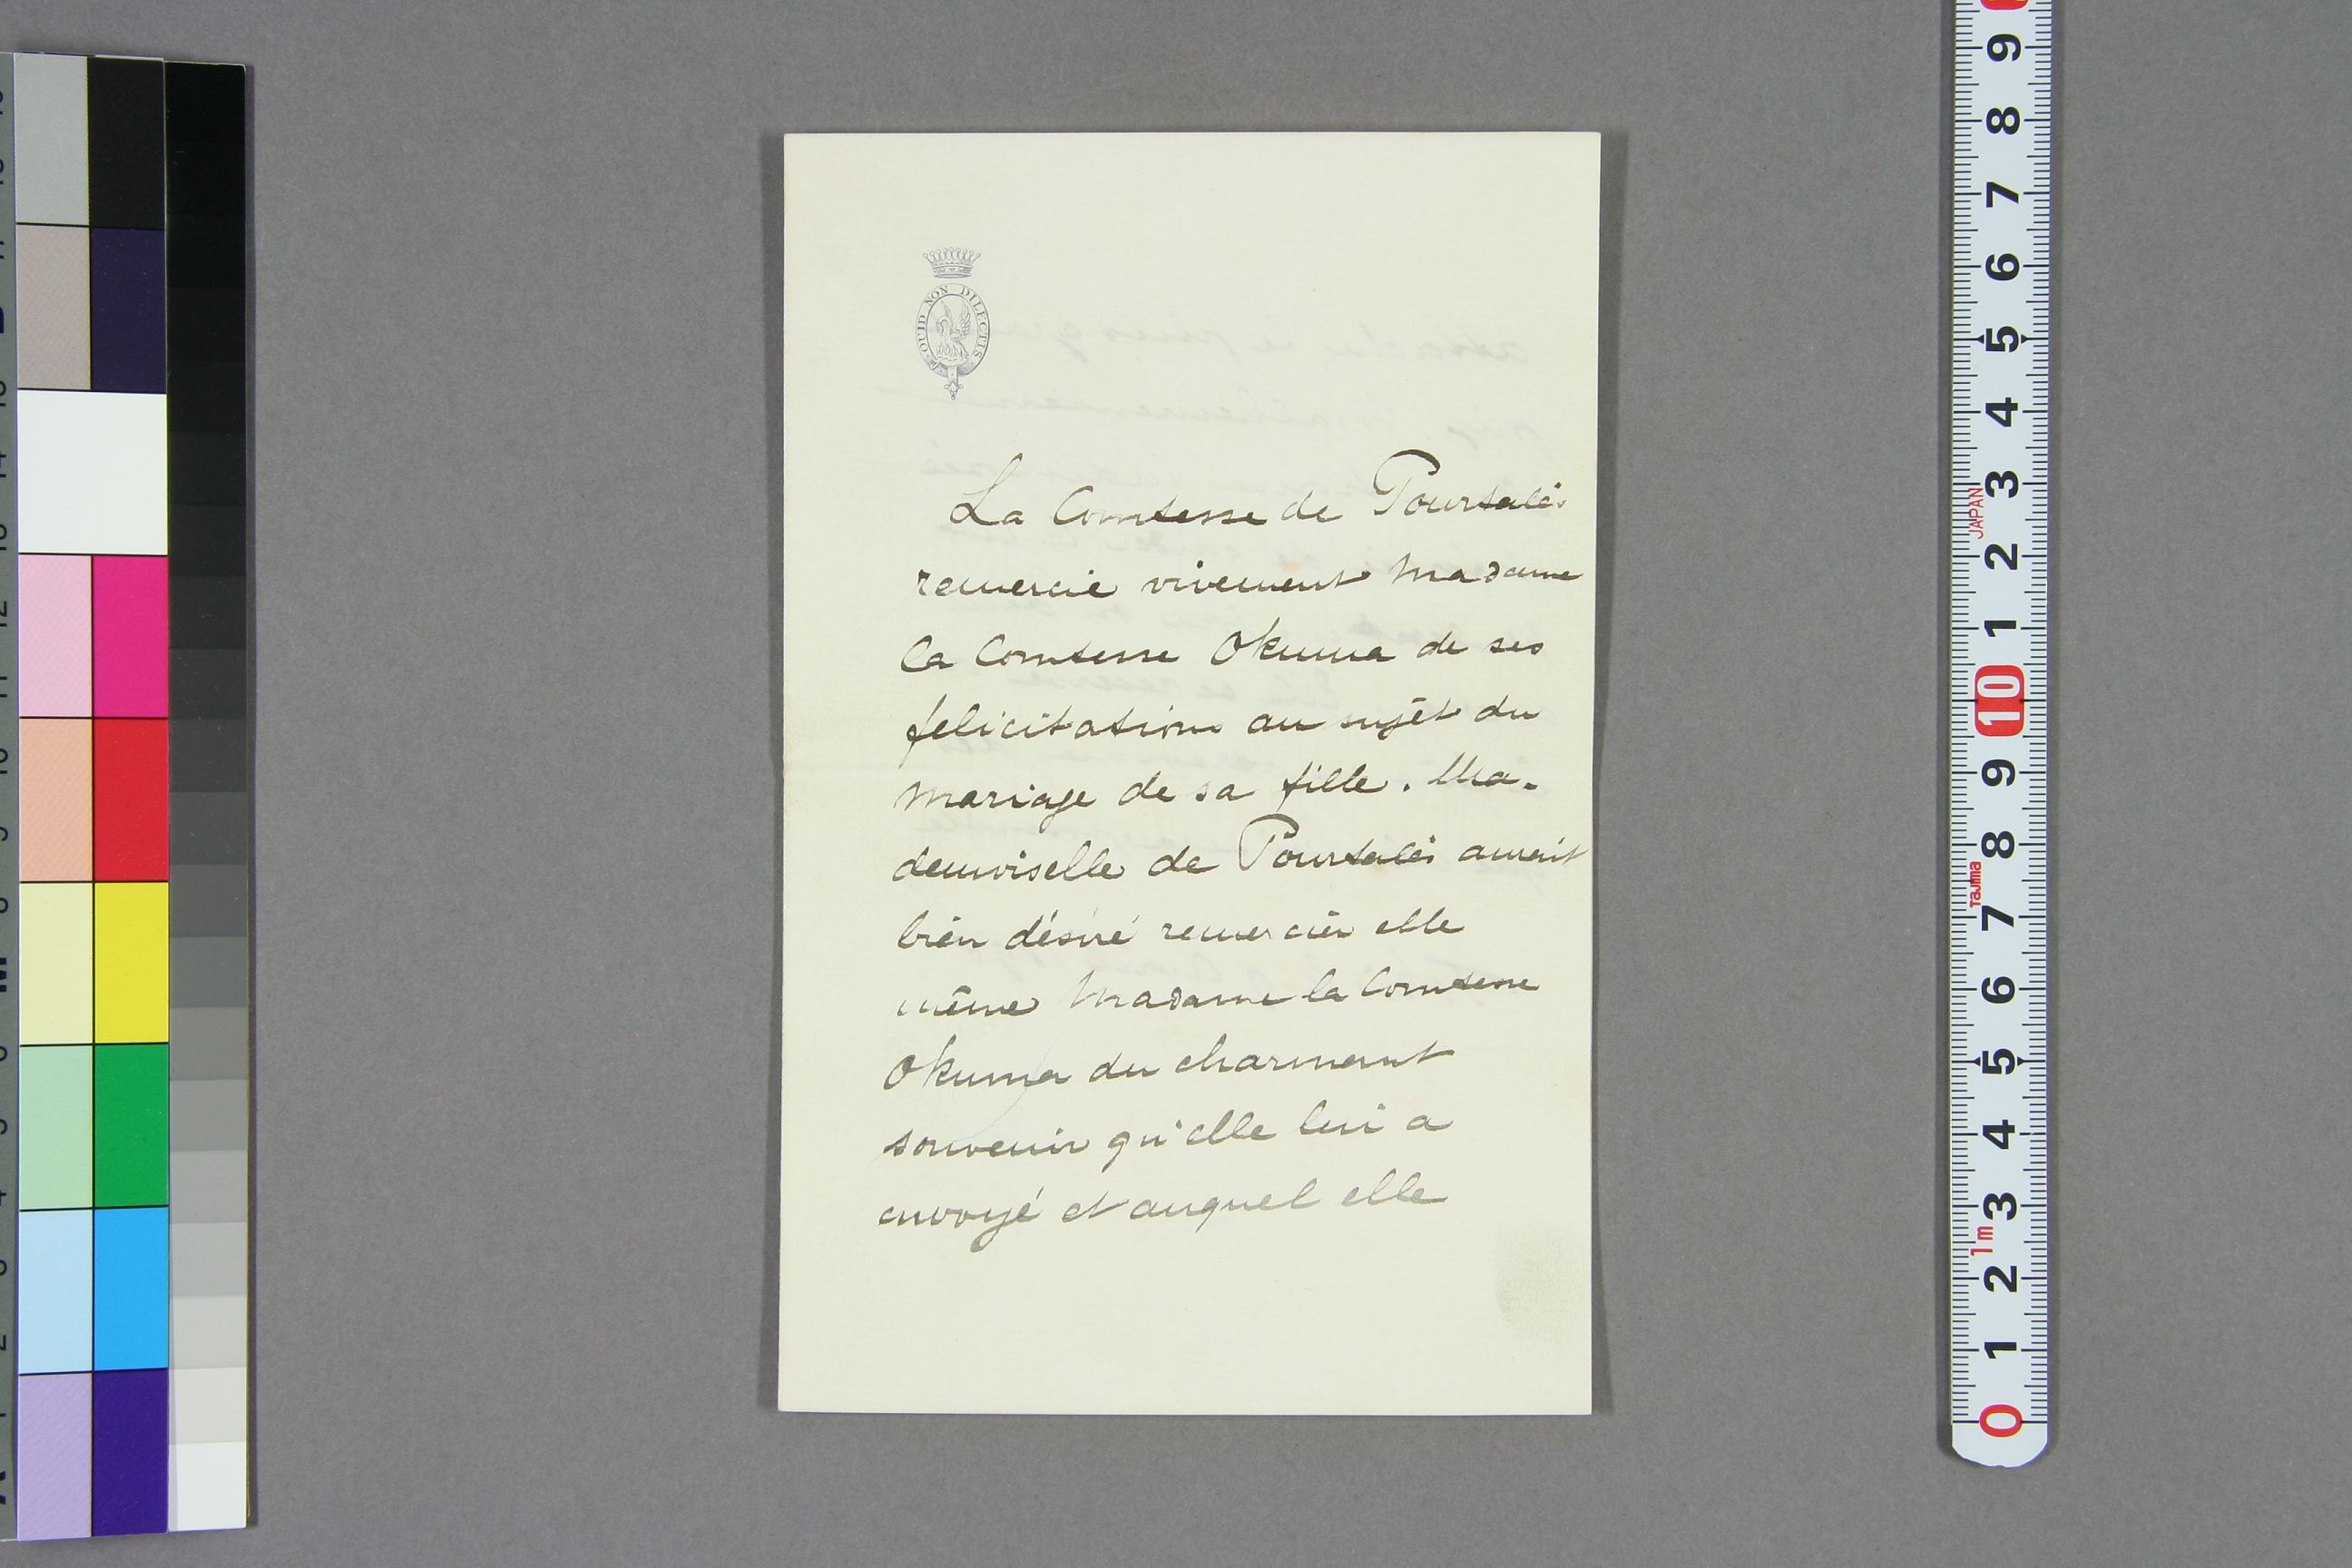 QUID NON DILECTIS
La Comtesse de Pourtalès
remercie vivement Madame
la Comtesse Okuma de ses
felicitations au sujèt du
mariage de sa fille. Ma-
demoiselle de Pourtalès aurait
bien désiré remercier elle
même Madame la Comtesse
Okuma du charmant
souvenir qu'elle lui a
envoyé et auquel elle
9
8
7
6
5
4
3
JAPAN
2
1
10
9
8
Tajima
7
6
5
4
3
1m
2
1
0